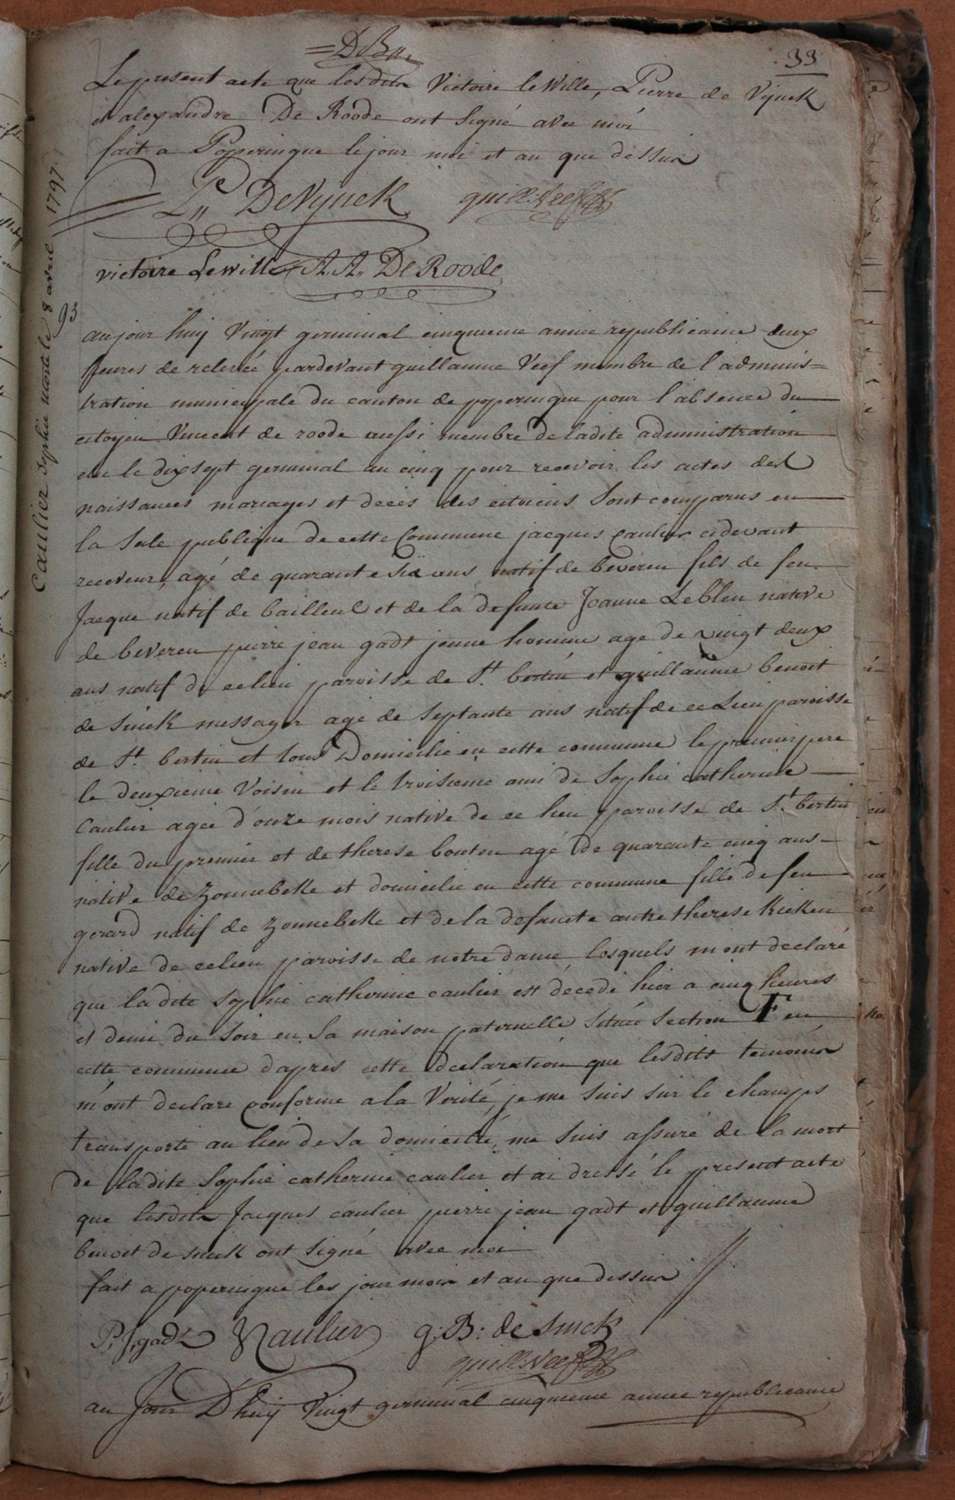 33
Le present acte que lesdits Victoire Lewille, Pierre de Vynck
et alexandre De Roode ont signé avec moi
fait a Poperingue le jour moi et an que dessus
P,, DeVynck guill. Veef
victoire Lewille A A. De Roode
Caulier Sophie morte le 8 avril 1797
93
aujour huij Vingt germinal cinquieme annee republicaine deux
heures de relevée pardevant guillaume Veef membre de l'adminis=
tration municipale du canton de poperingue pour l'absence du
citoyen Vincent de roode aussi membre de ladite administration
le dix sept germinal an cinq pour recevoir les actes des
naissances mariages et décés des citoiens sont comparus en
la Sale publique de cette Commune jacques caulier cidevant
receveur, agé de quarante six ans natif de béveren fils de feu
Jacque natif de bailleul et de la defunte Joanne Lebleu native
de beveren pierre jean gadt jeune homme age de vingt deux
ans natif de ce lieu paroisse de St. bertin et guillaume benoit
de Snick messager agé de septante ans natif de ce Lieu paroisse
de St. bertin et tous Domicilie en cette commune le premier pere
le deuxieme Voisin et le troisieme ami de Sophie catherine
Caulier agée d'onze mois native de ce lieu paroisse de St. bertin
fille du premier et de therese bouton agé de quarante cinq ans
native de Zonnebeke et domicilie en cette commune fille de feu
gerard natif de Zonnebeke et de la defuncte autre therese Kieken
native de ce lieu paroisse de notre dame lesquels m'ont declaré
que la dite Sophie catherine caulier est décedé hier a cinq heures
et demi du Soir en Sa maison paternelle Située Section F en
cette commune d'apres cette declaration que lesdits temoins
m'ont declare conforme a la Verité, je me suis sur le champs
transporté au lieu de Sa domicile, me suis assuré de la mort
de ladite Sophie catherine caulier et ai dressé le present acte
que lesdits Jacques caulier pierre jean gadt et guillaume
benoit de snick ont signé avec moi
fait a poperingue les jour mois et an que dessus
P. J. gadt Caulier g: B: de Snick
guill. Veef
au Jour D'huij Vingt germinal cinquieme annee republicaine